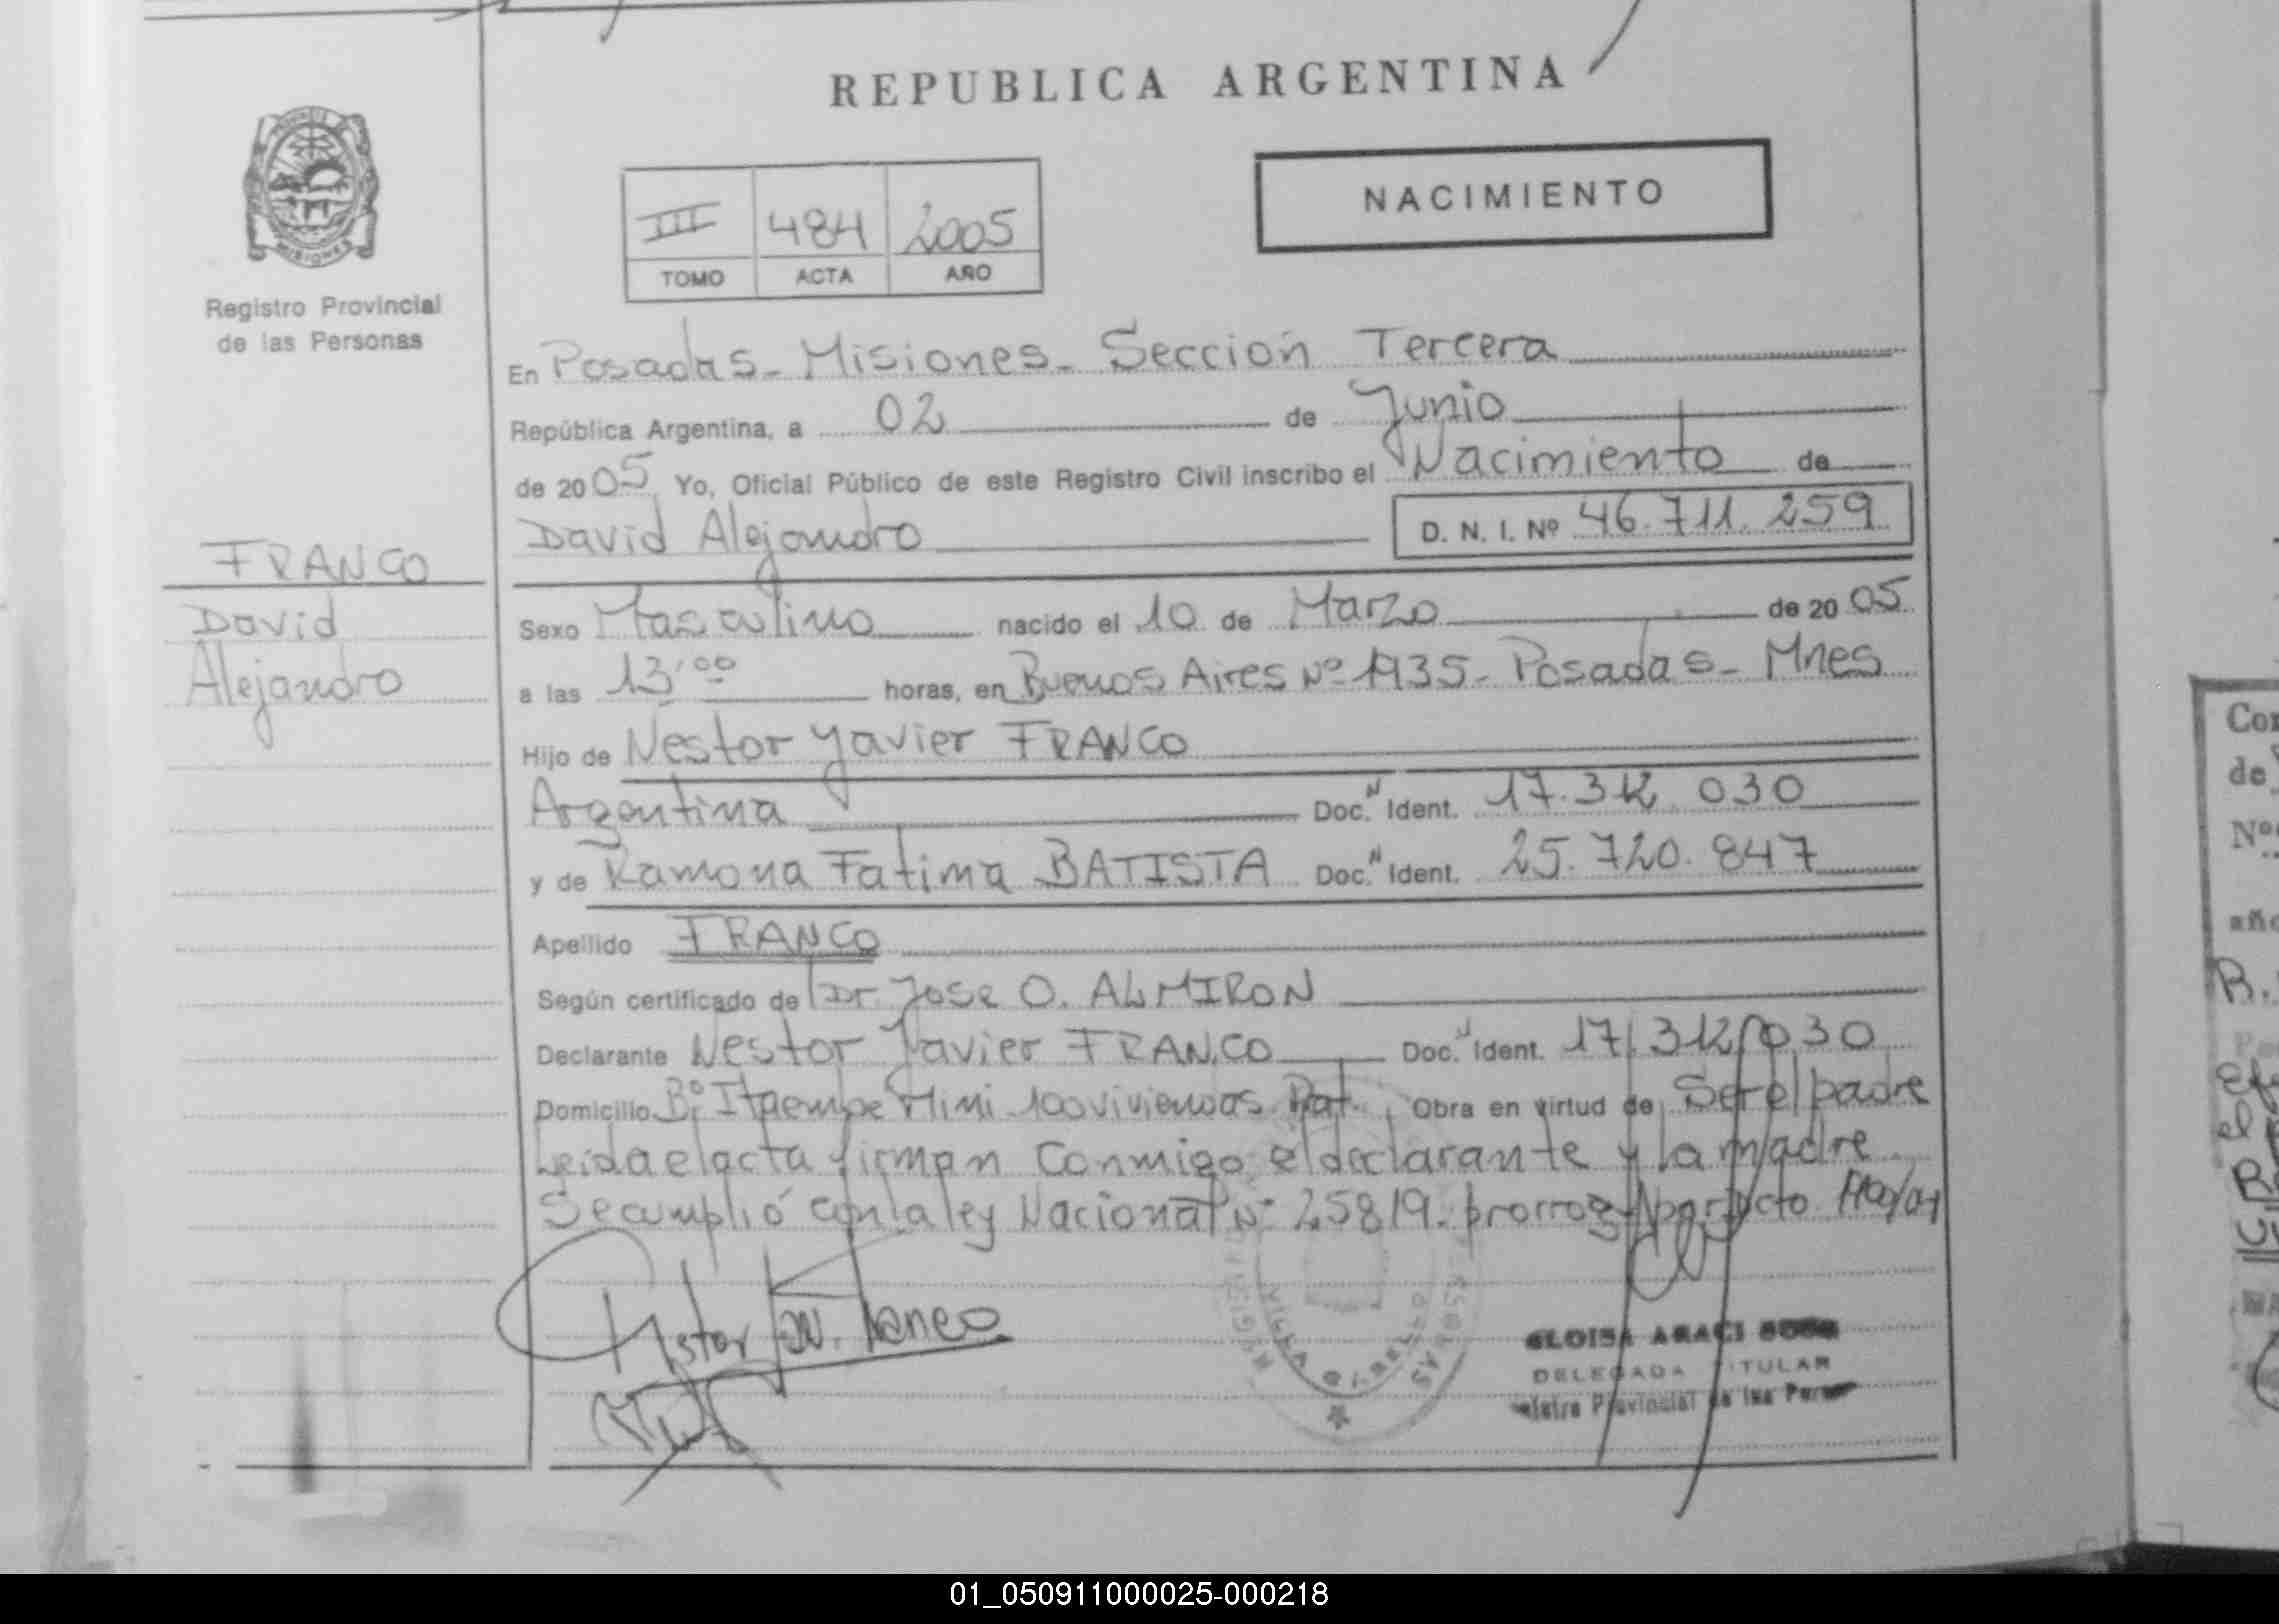 REPUBLICA ARGENTINA
NACIMIENTO
III 484 2005
TOMO ACTA AÑO
Registro Provincial
de las Personas
FRANCO
David
Alejandro
En Posadas - Misiones - Sección Tercera
República Argentina, a 02 de Junio
de 2005 Yo, Oficial Público de este Registro Civil inscribo el Nacimiento de
David Alejandro D. N. I. Nº 46.711.259
Sexo Masculino nacido el 10 de Marzo de 2005
a las 13'00 horas, en Buenos Aires Nº 1935 - Posadas - Mnes
Hijo de Nestor Javier FRANCO
Argentina Doc. N Ident. 17.312.030
y de Ramona Fatima BATISTA Doc. N Ident. 25.720.847
Apellido FRANCO
Según certificado de Dr. Jose O. ALMIRON
Declarante Nestor Javier FRANCO Doc. N Ident. 17.312.030
Domicilio Bº Itaembe Mini 100 viviendas Obra en virtud de Ser el padre
Leida el acta firman Conmigo el declarante y la madre
Se cumplió con la ley Nacional Nº 25819. prorrog
Nestor Franco
VILLA
POSADAS
MISIONES
ELOISA ARACI
DELEGADA TITULAR
Provincial de las
Con
de
Nº
año
R.
el
01_050911000025-000218